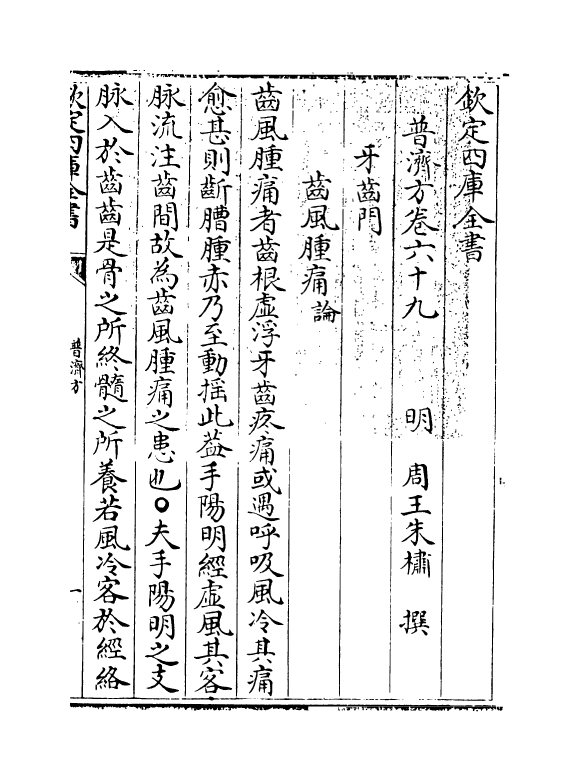 欽定四庫全書
普濟方卷六十九　明　周王朱橚　撰
牙齒門
齒風腫痛論
齒風腫痛者齒根虛浮牙齒疼痛或遇呼吸風冷其痛
愈甚則齗䐬腫赤乃至動揺此葢手陽明經虛風其客
脉流注齒間故為齒風腫痛之患也〇夫手陽明之支
脉入於齒齒是骨之所終髓之所養若風冷客於經絡
欽定四庫全書
普濟方
一